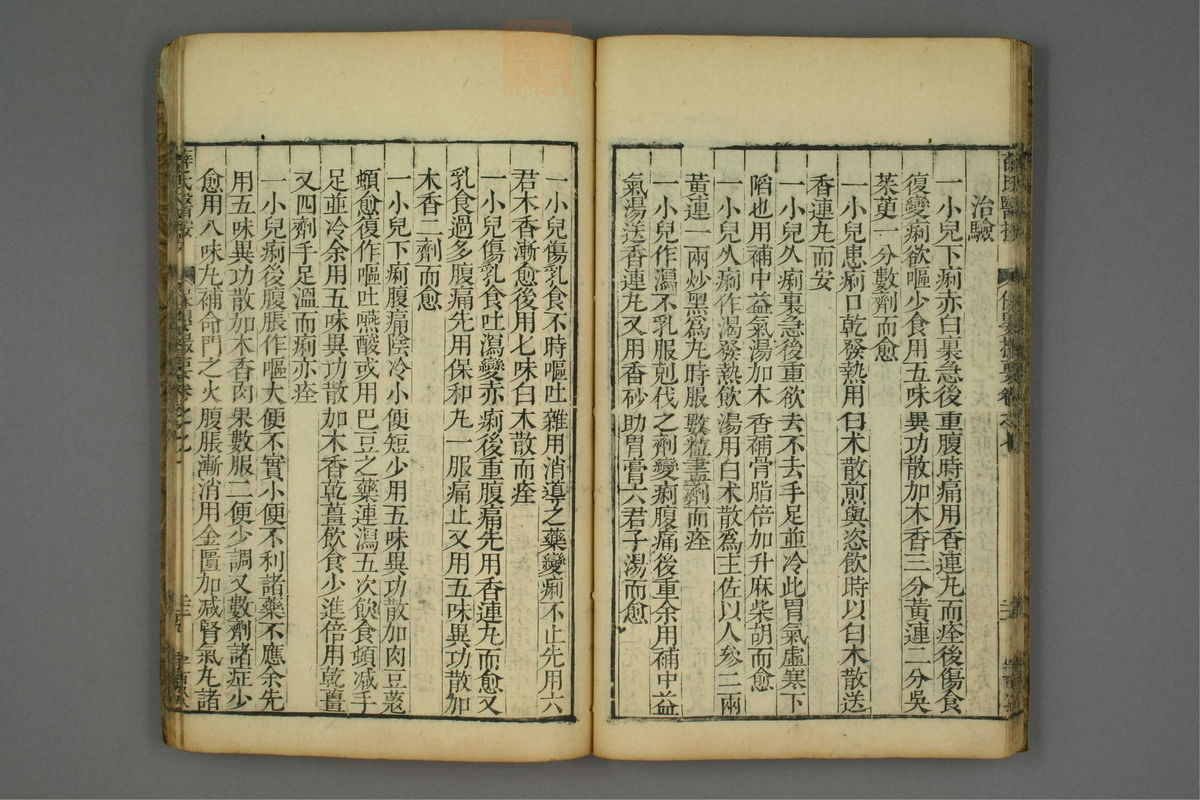 治驗
一小兒下痢赤白裏急後重腹時痛用香連丸而痊後傷食
復變痢欲嘔少食用五味異功散加木香三分黃連二分吳
茱萸一分數劑而愈
一小兒患痢口乾發熱用白术散煎與恣飲時以白术散送
香連丸而安
一小兒久痢裏急後重欲去不去手足並冷此胃氣虛寒下
陷也用補中益氣湯加木香補骨脂倍加升麻柴胡而愈
一小兒久痢作渴發熱飲湯用白术散爲主佐以人參二兩
黃連一兩炒黑爲丸時服數粒盡劑而痊
一小兒作瀉不乳服剋伐之劑變痢腹痛後重余用補中益
氣湯送香連丸又用香砂助胃膏六君子湯而愈
一小兒傷乳食不時嘔吐雜用消導之藥變痢不止先用六
君木香漸愈後用七味白术散而痊
一小兒傷乳食吐瀉變赤痢後重腹痛先用香連丸而愈又
乳食過多腹痛先用保和丸一服痛止又用五味異功散加
木香二劑而愈
一小兒下痢腹痛陰冷小便短少用五味異功散加肉豆蔻
頓愈復作嘔吐嚥酸或用巴豆之藥連瀉五次飲食頓減手
足並冷余用五味異功散加木香乾薑飲食少進倍用乾薑
又四劑手足溫而痢亦痊
一小兒痢後腹脹作嘔大便不實小便不利諸藥不應余先
用五味異功散加木香肉果數服二便少調又數劑諸症少
愈用八味丸補命門之火腹脹漸消用金匱加减腎氣丸諸
薛氏醫按